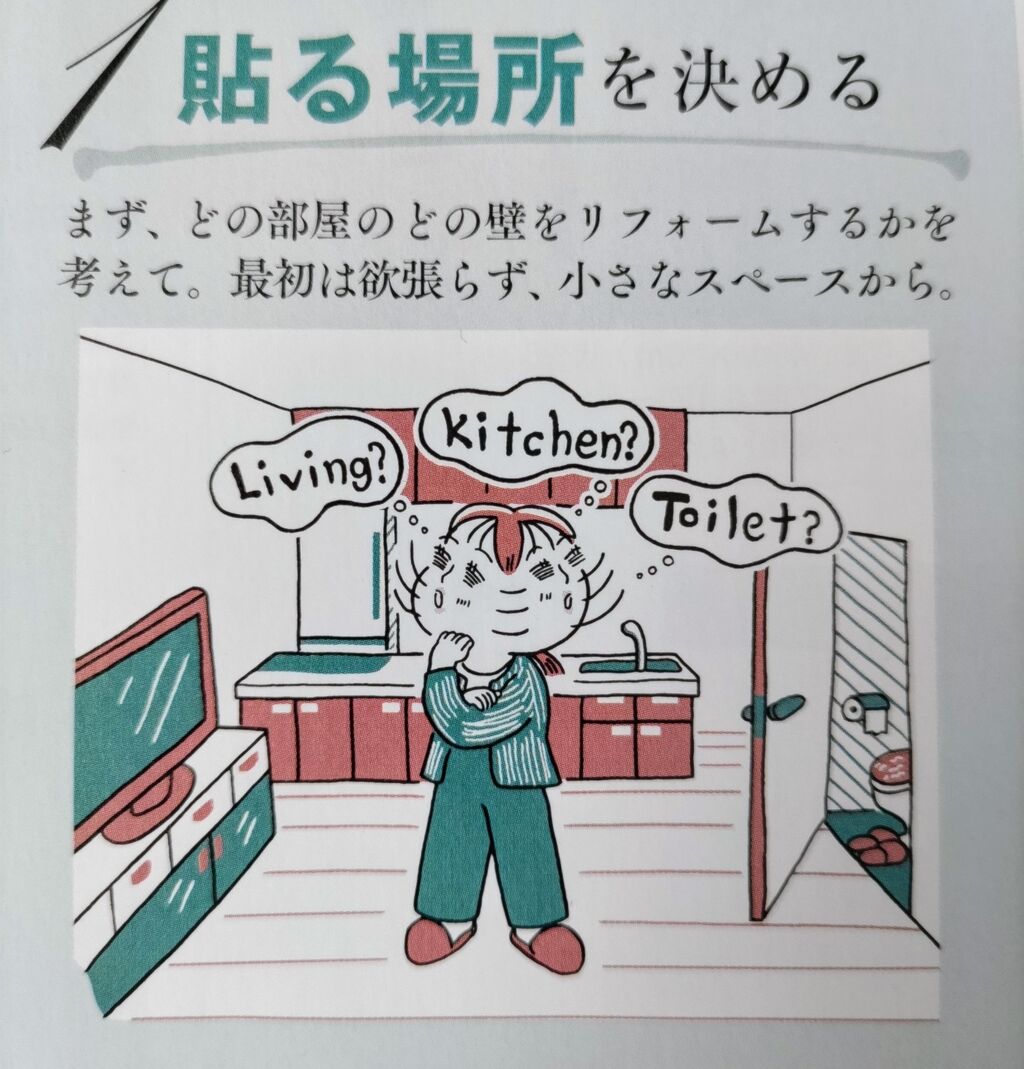 1 貼る場所を決める
まず、どの部屋のどの壁をリフォームするかを
考えて。最初は欲張らず、小さなスペースから。
Living?
Kitchen?
Toilet?